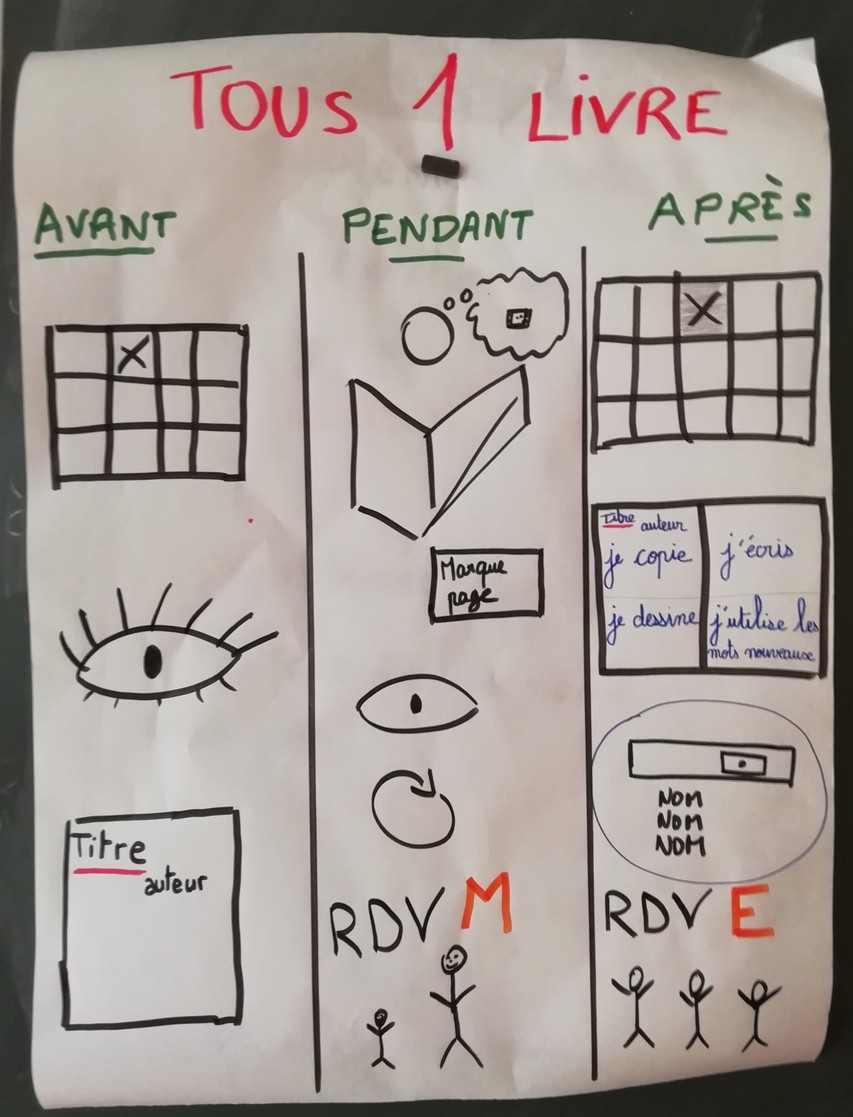 TOUS 1 LIVRE
AVANT
X
Titre
auteur
PENDANT
Marque
page
RDV M
APRÈS
X
Titre auteur
je copie
je dessine
j'écris
j'utilise les
mots nouveaux
NOM
NOM
NOM
RDV E